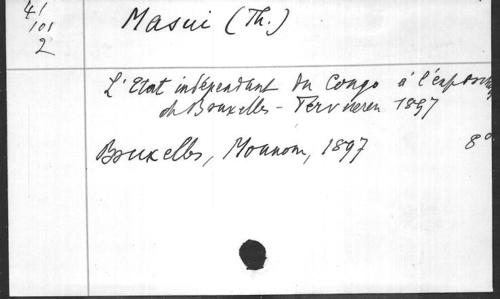 41
101
2
Masui (Th.)
L'Etat indépendant du Congo à l'exposition
de Bruxelles - Tervueren 1897
Bruxelles, Monnom, 1897 8°